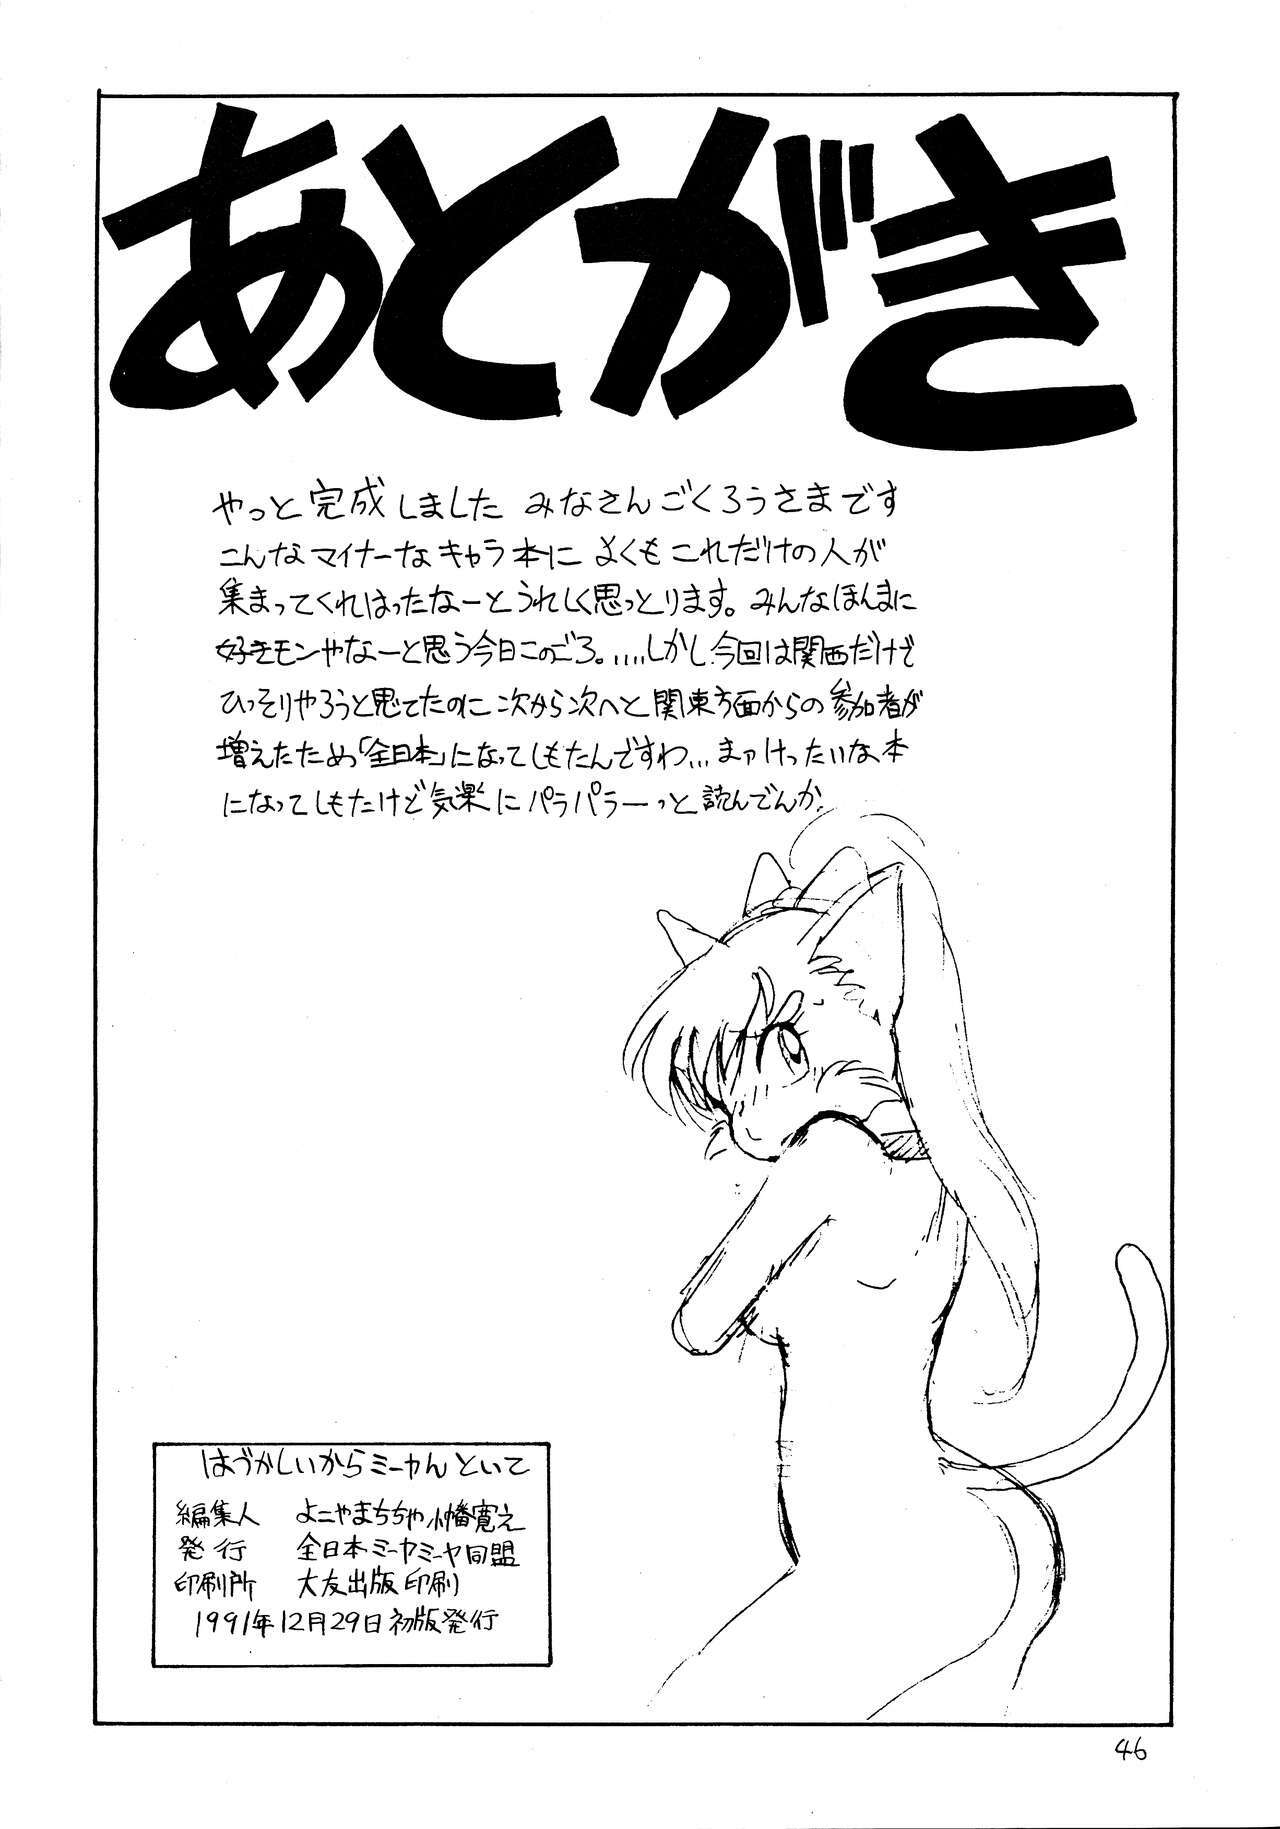 あとがき
やっと完成しました みなさんごくろうさまです
こんなマイナーなキャラ本に よくもこれだけの人が
集まってくれはったなーとうれしく思っとります。みんなほんまに
好きモンやなーと思う今日このごろ。....しかし今回は関西だけで
ひっそりやろうと思てたのに次から次へと関東方面からの参加者が
増えたため「全日本」になってしもたんですわ...まァけったいな本
になってしもたけど気楽にパラパラーっと読んでんか
はづかしいからミーヤんといて
編集人 よこやまちちや 小幡寛え
発行 全日本ミーヤミーヤ同盟
印刷所 大友出版印刷
1991年12月29日初版発行
46